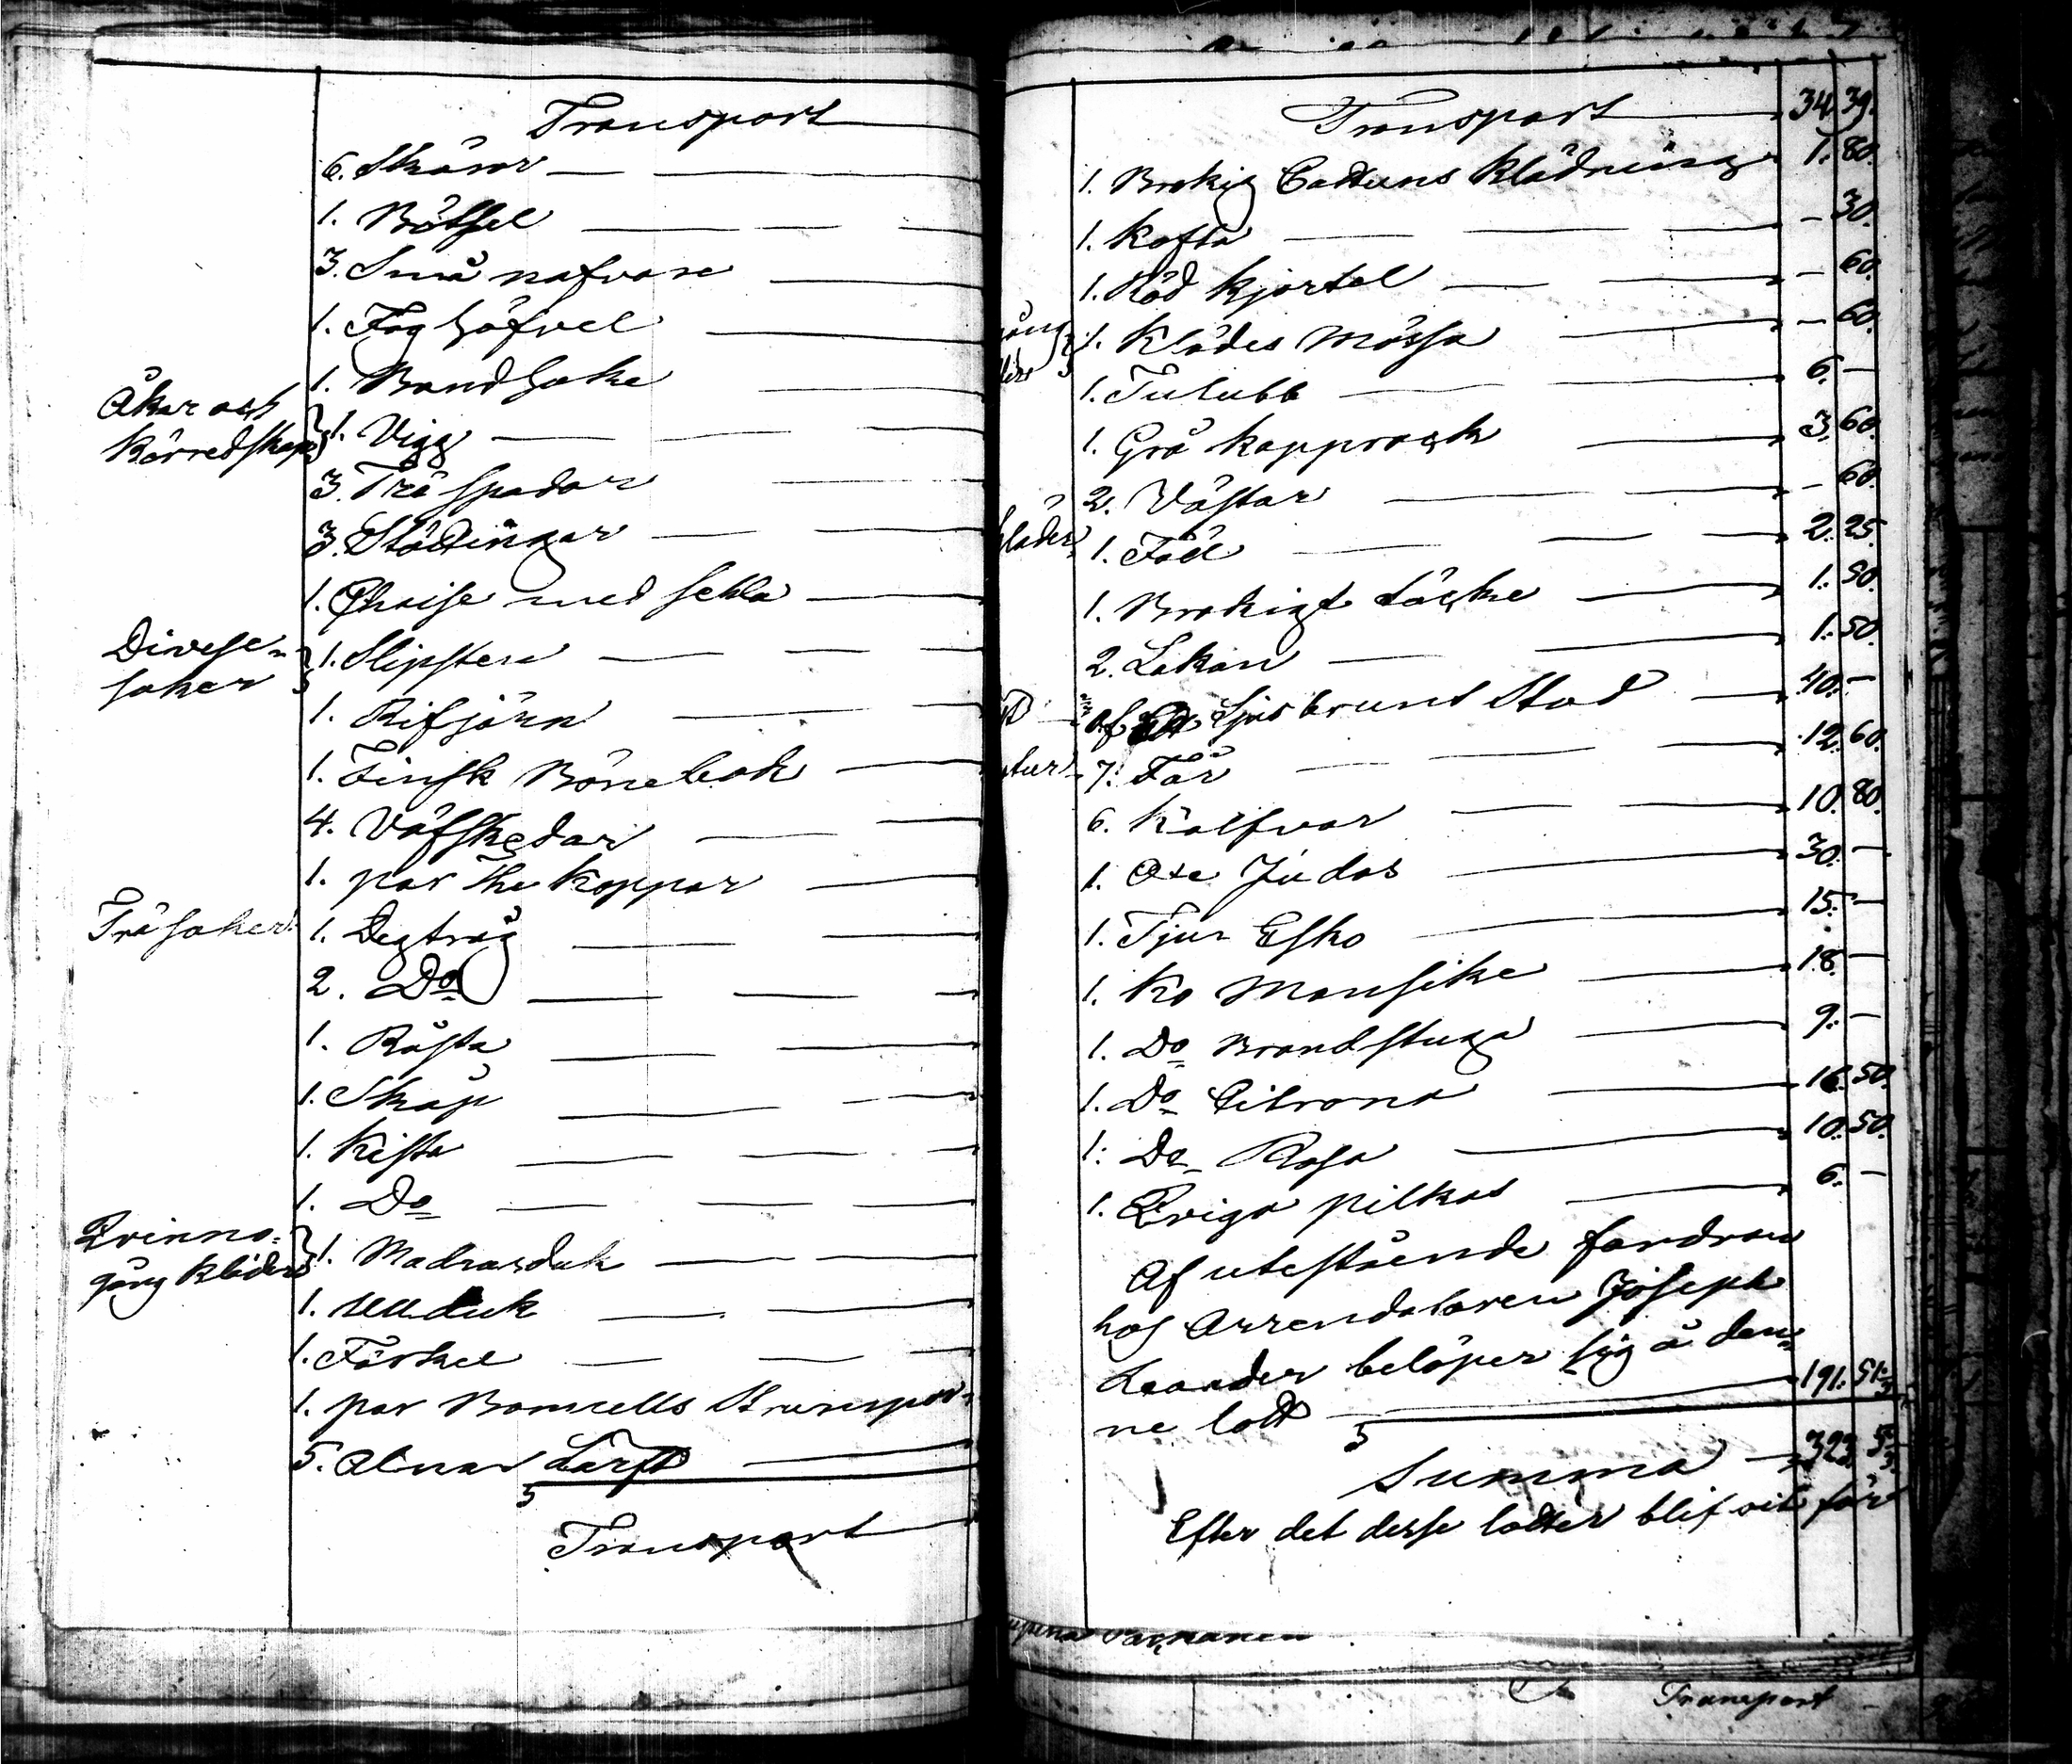 Transport
6. Skäror
1. Bötsel
3. Små nafvare
1. Foghöfvel
1. Bandhake
Åker och
Körredskap
1. Vigg
3. Träspadar
3. Stöttingar
1. Chaise med sehla
Diverse
saker
1. Slipsten
1. Rifjärn
1. Finsk Bönebok
4. Väfskedar
1. par The Koppar
Träsaker
1. Degtråg
2. Do
1. Råsta
1. Skåp
1. Kista
1. Do
Qvinno-
gång kläder
1. Madrasduk
1. Ullduk
1. Förkel
1. par Bomulls Strumpor
5. Alnar Lärft
Transport
Transport 34. 39.
1. Brokig Cattuns Klädning 1. 80.
1. Kofta — 30.
1. Röd Kjortel — 60.
1. Klädes Mössa — 60.
1. Tulubb 6. —
1. Grå Kapprock 3. 60.
2. Västar — 60.
kläder
1. Fäll 2. 25.
1. Brokigt täcke 1. 50.
2. Lakan 1. 50.
Af Ljusbrunt Stod 40. —
7. Får 12. 60.
6. Kalfvar 10. 80.
1. Oxe Judas 30. —
1. Tjur Esko 15. —
1. Ko Mansike 18. —
1. Do Brandstuga 9. —
1. Do Citrona 16. 50.
1. Do Rosa 10. 50.
1. Qviga pilkas 6. —
Af utestående fordran
hos Arrendatoren Joseph
Leander belöper sig å den-
ne lott 191. 51
Summa 323. 5
Efter det desse lotter blifvit för
Transport